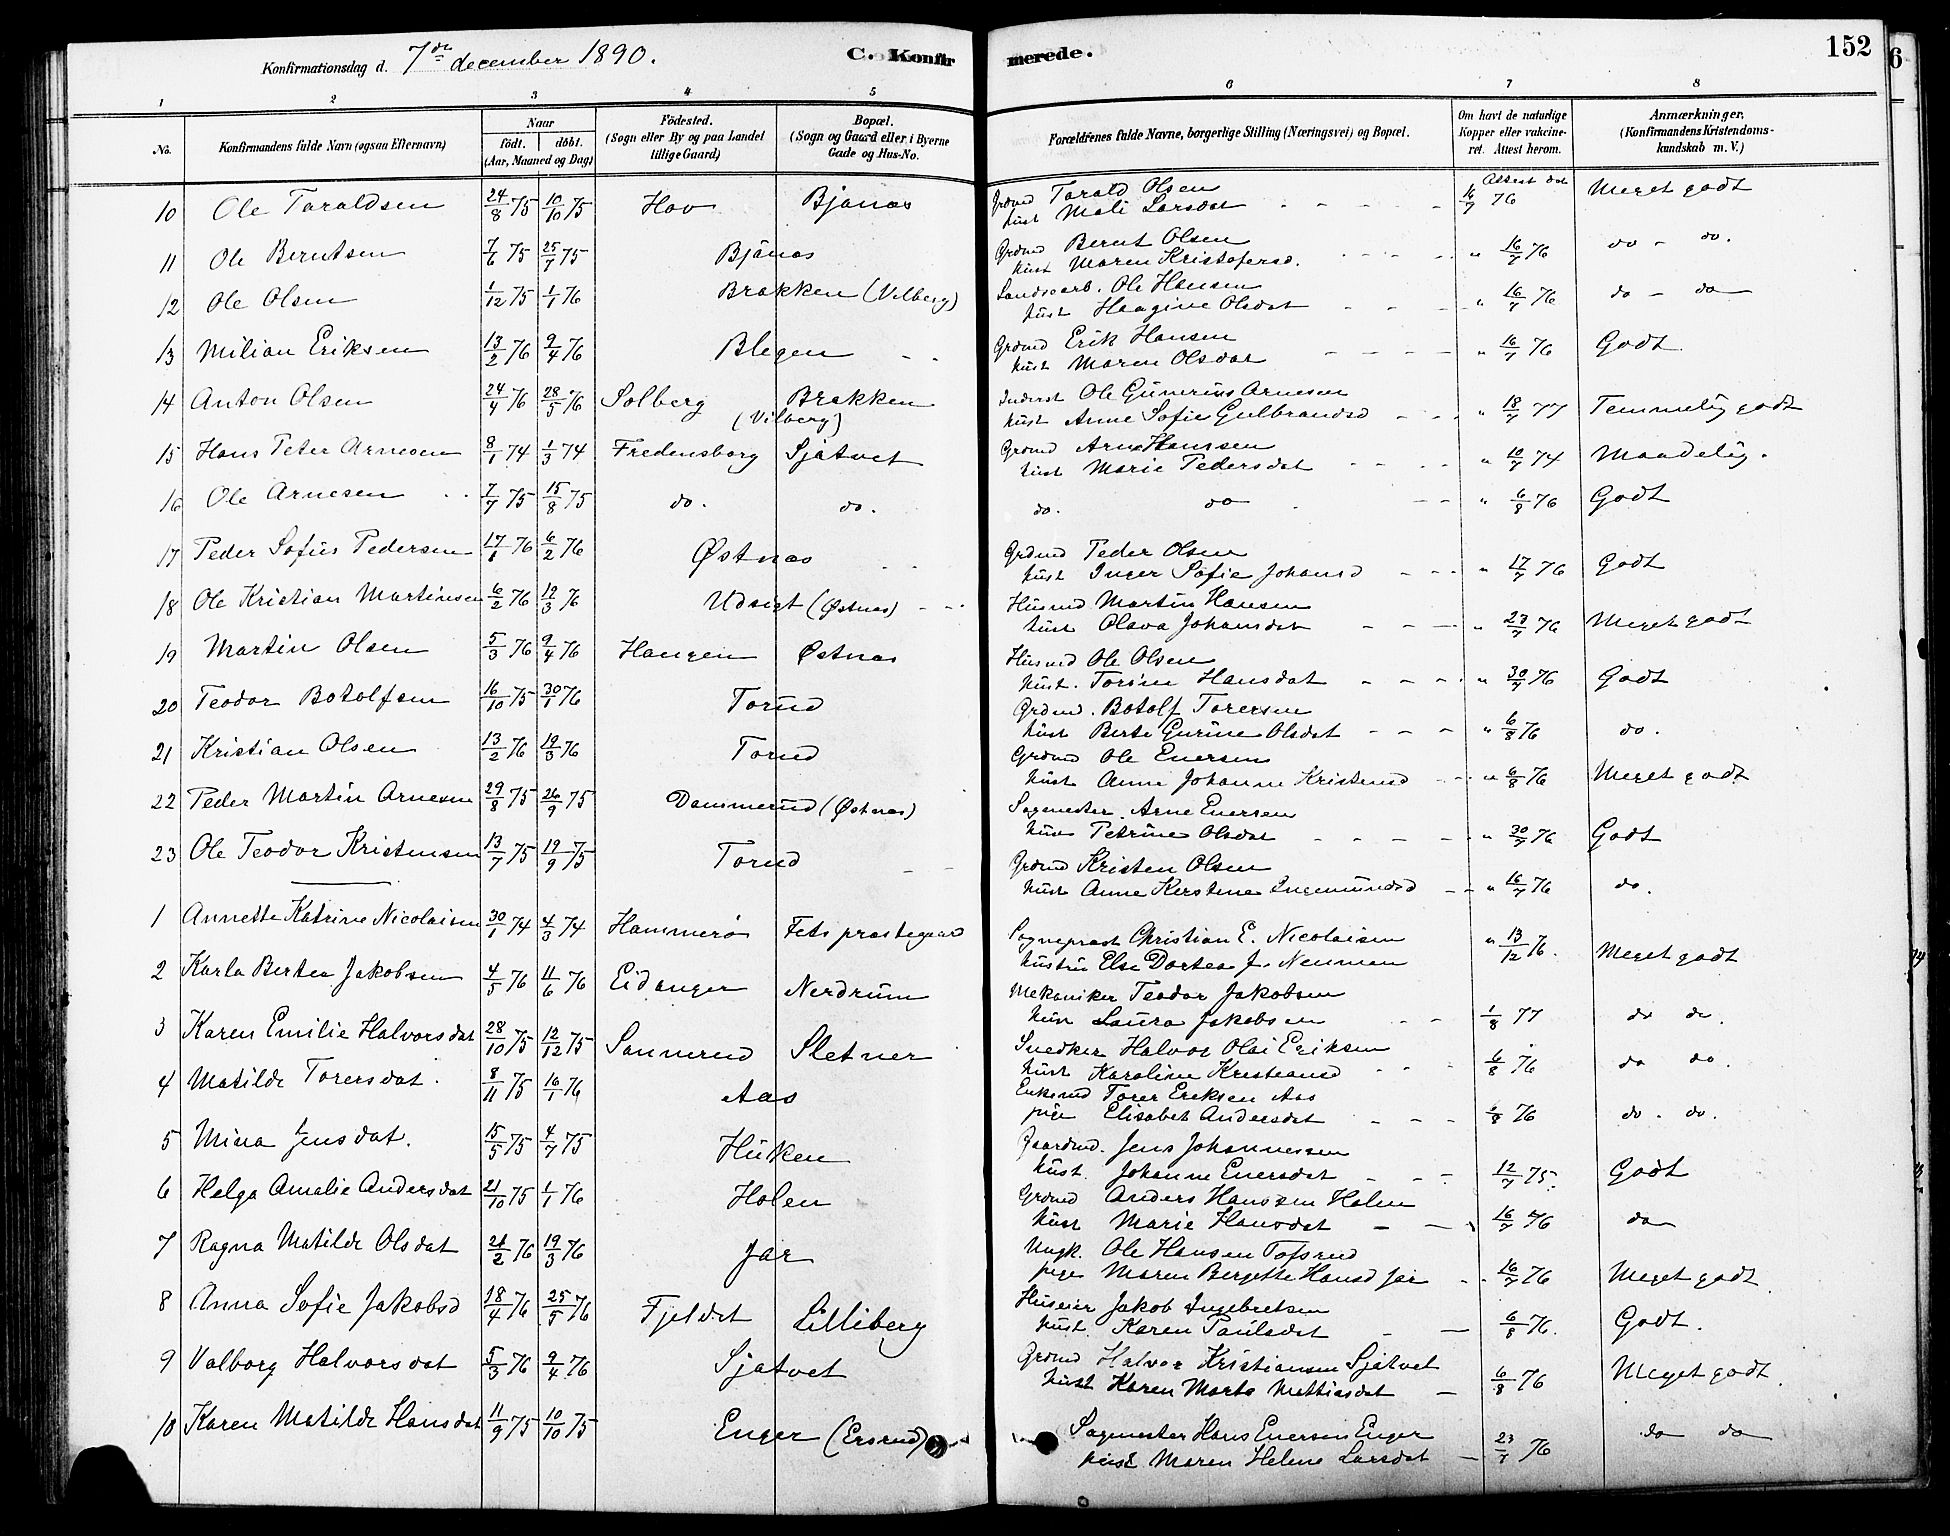 Konfirmationsdag d. 7de december 1890. C. Konfirmerede. 152
1 2 3 4 5 6 7 8
No. Konfirmandens fulde Navn (ogsaa Efternavn) Naar født. døbt. (Aar, Maaned og Dag) Fødested. (Sogn eller By og paa Landet tillige Gaard) Bopæl. (Sogn og Gaard eller i Byerne Gade og Hus-No. Forældrenes fulde Navne, borgerlige Stilling (Næringsvei) og Bopæl. Om havt de naturlige Kopper eller vakcineret. Attest herom. Anmærkninger. (Konfirmandens Kristendomskundskab m. V.)
10 Ole Taraldsen 24/8 75 10/10 75 Hov Bjønas Grdmd Tarald Olsen Attest dat 16/7 76 Meget godt
hust Mali Larsdat
11 Ole Berntsen 7/6 75 25/7 75 Bjønas Grdmd Bernt Olsen " 16/7 76 do - do.
hust Maren Kristofersd.
12 Ole Olsen 1/12 75 1/1 76 Brakken (Vilberg) Landsarb. Ole Hansen " 16/7 76 do - do
hust Haagine Olsdat
13 Milian Eriksen 13/2 76 9/4 76 Blegen Grdmd Erik Hansen " 16/7 76 Godt
hust Maren Olsdat
14 Anton Olsen 24/4 76 28/5 76 Solberg Brakken (Vilberg) Inderst Ole Gunerius Arnesen " 18/7 77 Temmelig godt
hust Anne Sofie Gulbrandsd
15 Hans Peter Arnesen 8/1 74 1/3 74 Fredensborg Sjatvet Grdmd Arne Hanssen " 10/7 74 Maadelig.
hust Marie Pedersdat
16 Ole Arnesen 7/7 75 15/8 75 do. do. do. do " 6/8 76 Godt
17 Peder Sofus Pedersen 17/1 76 6/2 76 Østnas Grdmd Peder Olsen " 17/7 76 Godt
hust Inger Sofie Johansd
18 Ole Kristian Martinsen 6/2 76 12/3 76 Udsigt (Østnas) Husmd Martin Hansen " 23/7 76 Meget godt
hust Olava Johansdat
19 Martin Olsen 5/3 76 9/4 76 Haugen Østnas Husmd Ole Olsen " 30/7 76 Godt
hust. Torine Hansdat
20 Teodor Botolfsen 16/10 75 30/1 76 Torud Grdmd. Botolf Torersen " 6/8 76 do.
hust Berte Gurine Olsdat
21 Kristian Olsen 13/2 76 19/3 76 Torud Grdmd Ole Enersen " 6/8 76 Meget godt
hust Anne Johanne Kristensd
22 Peder Martin Arnesen 29/8 75 26/9 75 Dammerud (Østnas) Sagmester Arne Enersen " 30/7 76 Godt
hust Petrine Olsdat
23 Ole Teodor Kristensen 13/7 75 19/9 75 Torud Grdmd Kristen Olsen " 16/7 76 do.
hust Anne Kerstine Ingemundsd
1 Annette Katrine Nicolaisen 30/1 74 4/3 74 Hammerø Fets prastegaard Sogneprast Christian E. Nicolaisen " 13/12 76. Meget godt
hustru Else Dortea J. Neuman
2 Karla Bertea Jakobsen 4/5 76 11/6 76 Eidanger Nerdrum Mekaniker Teodor Jakobsen 1/8 77 do do.
hust Laura Jakobsen
3 Karen Emilie Halvorsdat 28/10 75 12/12 75 Sannerud Sletner Snedker Halvor Olai Eriksen 6/8 76 do do.
hust Karoline Kristiansd
4 Matilde Torersdat. 8/11 75 16/1 76 Aas Enkemd Torer Eriksen Aas 6/8 76 do. do.
pige Elisabet Andersdat
5 Mina Jensdat. 15/5 75 4/7 75 Huken Gaardmd. Jens Johannessen 12/7 75. Godt
hust. Johanne Enersdat
6 Helga Amalie Andersdat 21/10 75 1/1 76 Holen Grdmd Anders Hanssen Holen 16/7 76 do
hust Marie Hansdat
7 Ragna Matilde Olsdat 21/2 76 19/3 76 Jar Ungk. Ole Hansen Tofsrud 16/7 76 Meget godt
pige Maren Bergette Hansd Jar
8 Anna Sofie Jakobsd 18/4 76 25/5 76 Fjeldet Lilliberg Huseier Jakob Ingebretsen 6/8 76. Godt.
hust. Karen Paulsdat
9 Valborg Halvorsdat 5/3 76 9/4 76 Sjatvet Grdmd Halvor Kristiansen Sjatvet 6/8 76 Meget godt.
hust Karen Marte Mattiasdat
10 Karen Matilde Hansdat 11/9 75 10/10 75 Enger (Ersrud) Sagmester Hans Enersen Enger 23/7 76 do do
hust Maren Helene Larsdat